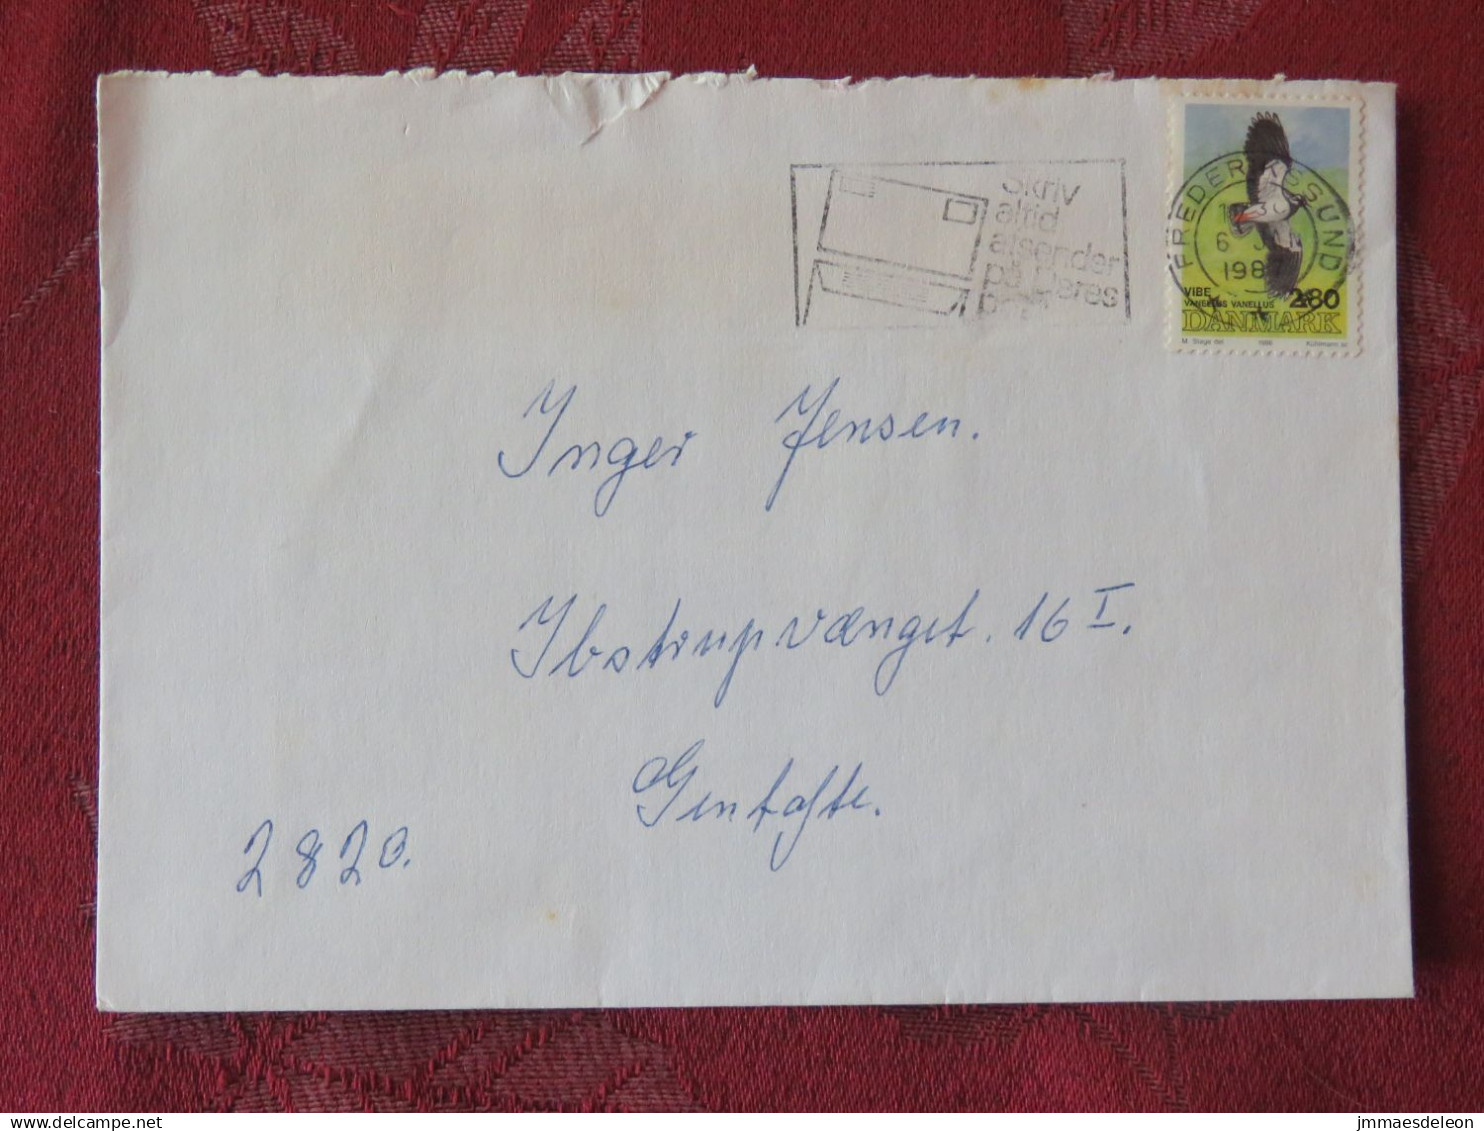 Skriv
altid
afsender
på Deres
FREDERIKSSUND
6
198
VIBE
VANELLUS VANELLUS
280
DANMARK
M. Stage del. 1986
Inger Jensen.
Ibstrupvænget. 16 I.
Gentofte.
2820.
www.delcampe.net
jmmaesdeleon